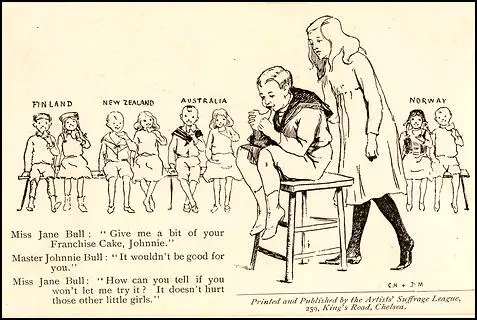 FINLAND
NEW ZEALAND
AUSTRALIA
NORWAY
Miss Jane Bull : “ Give me a bit of your
Franchise Cake, Johnnie.”
Master Johnnie Bull : “ It wouldn't be good for
you.”
Miss Jane Bull : “ How can you tell if you
won't let me try it ? It doesn't hurt
those other little girls.”
C.H + D.M
Printed and Published by the Artists' Suffrage League,
259, King's Road, Chelsea.